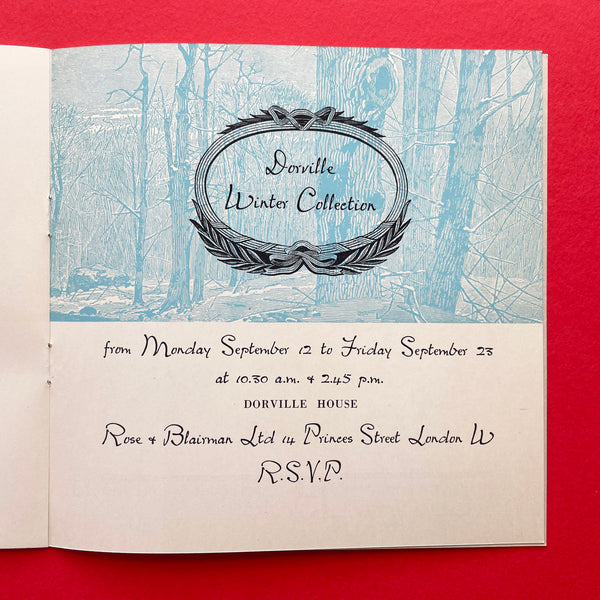 Dorville
Winter Collection
from Monday September 12 to Friday September 23
at 10.30 a.m. & 2.45 p.m.
DORVILLE HOUSE
Rose & Blairman Ltd 14 Princes Street London W
R.S.V.P.